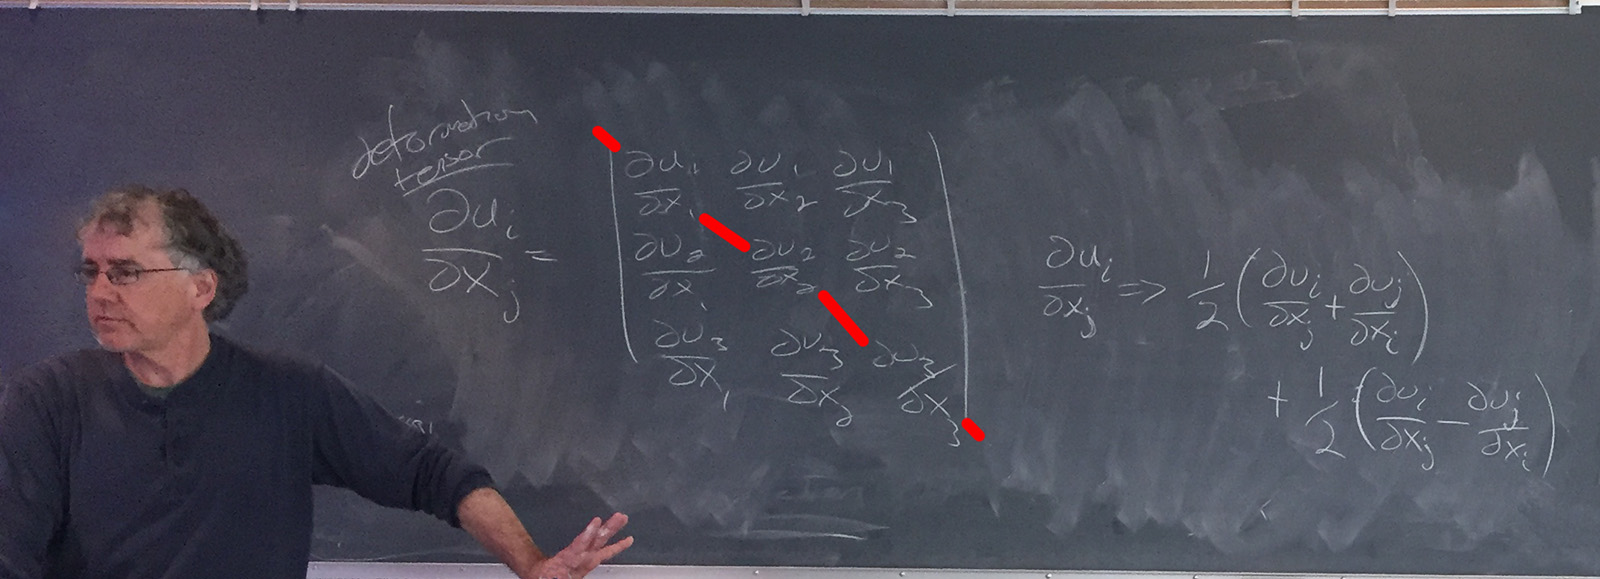 deformation
tensor
∂u_i/∂x_j =
∂u_1/∂x_1 ∂u_1/∂x_2 ∂u_1/∂x_3
∂u_2/∂x_1 ∂u_2/∂x_2 ∂u_2/∂x_3
∂u_3/∂x_1 ∂u_3/∂x_2 ∂u_3/∂x_3
∂u_i/∂x_j => 1/2 (∂u_i/∂x_j + ∂u_j/∂x_i)
+ 1/2 (∂u_i/∂x_j − ∂u_j/∂x_i)